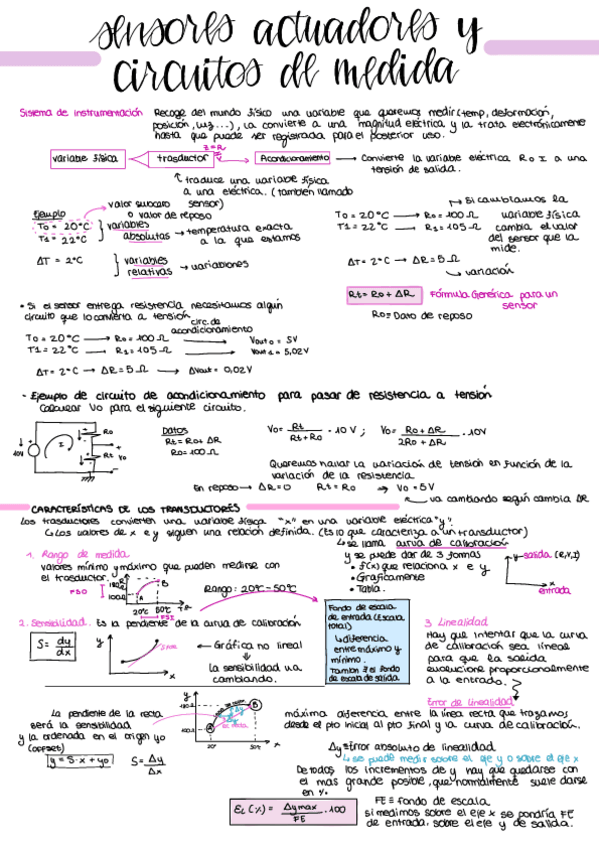 sensores actuadores y
circuitos de medida
Sistema de instrumentación Recoge del mundo físico una variable que queremos medir (temp, deformación,
posición, luz ...), la convierte a una magnitud eléctrica y la trata electrónicamente
hasta que puede ser registrada para el posterior uso.
variable física
trasductor
Acondicionamiento → Convierte la variable eléctrica R o I a una
tensión de salida.
traduce una variable física
a una eléctrica. (también llamado
sensor)
Ejemplo
valor
o valor de reposo
To = 20°C
T1 = 22°C
variables
absolutas → temperatura exacta
a la que estamos
ΔT = 2°C
variables
relativas → variaciones
To = 20°C → Ro = 100 Ω
T1 = 22°C → R1 = 105 Ω
Si cambiamos la
variable física
cambia el valor
del sensor que la
mide.
ΔT = 2°C → ΔR = 5 Ω
variación
Rt = Ro + ΔR
Fórmula Genérica para un
sensor
Ro = Dato de reposo
• Si el sensor entrega resistencia necesitamos algún
circuito que lo convierta a tensión
circ. de
acondicionamiento
To = 20°C → Ro = 100 Ω → Vout0 = 5V
T1 = 22°C → R1 = 105 Ω → Vout1 = 5,02V
ΔT = 2°C → ΔR = 5 Ω → ΔVout = 0,02V
- Ejemplo de circuito de acondicionamiento para pasar de resistencia a tensión
Calcular Vo para el siguiente circuito.
10V
I
Ro
Rt
Vo
Datos
Rt = Ro + ΔR
Ro = 100 Ω
Vo = Rt / (Rt + Ro) · 10V ; Vo = (Ro + ΔR) / (2Ro + ΔR) · 10V
Queremos hallar la variación de tensión en función de la
variación de la resistencia
En reposo → ΔR = 0 Rt = Ro → Vo = 5V
va cambiando según cambia ΔR
CARACTERÍSTICAS DE LOS TRANSDUCTORES
Los trasductores convierten una variable física "x" en una variable eléctrica "y".
↳ Los valores de x e y siguen una relación definida. (Es lo que caracteriza a un transductor)
↳ se llama curva de calibración
y se puede dar de 3 formas
• f(x) que relaciona x e y
• Gráficamente
• Tabla.
y
salida (R,V,I)
x
entrada
1. Rango de medida
valores mínimo y máximo que pueden medirse con
el trasductor.
FSO
R
100Ω
A
B
20°C 50°C
FSI
Rango: 20°C - 50°C
Fondo de escala
de entrada (Escala
total)
↳ diferencia
entre máximo y
mínimo.
de escala de salida
2. Sensibilidad. Es la pendiente de la curva de calibración
S = dy/dx
y
x
Gráfica no lineal
La sensibilidad va
cambiando.
3. Linealidad
Hay que intentar que la curva
de calibración sea lineal
para que la salida
evolucione proporcionalmente
a la entrada.
La pendiente de la recta
será la sensibilidad
y la ordenada en el origen yo
(offset)
y = S·x + yo
S = Δy/Δx
y
A
B
recta
20°
50°C
x
Error de linealidad
máxima diferencia entre la línea recta que trazamos
desde el pto inicial al pto final y la curva de calibración.
Δy = Error absoluto de linealidad
↳ se puede medir sobre el eje y o sobre el eje x
De todos los incrementos de y hay que quedarse con
el mas grande posible, que normalmente suele darse
en %
EL(%) = Δymax / FE · 100
FE = fondo de escala
si medimos sobre el eje x se pondría FE
de entrada, sobre el eje y de salida.